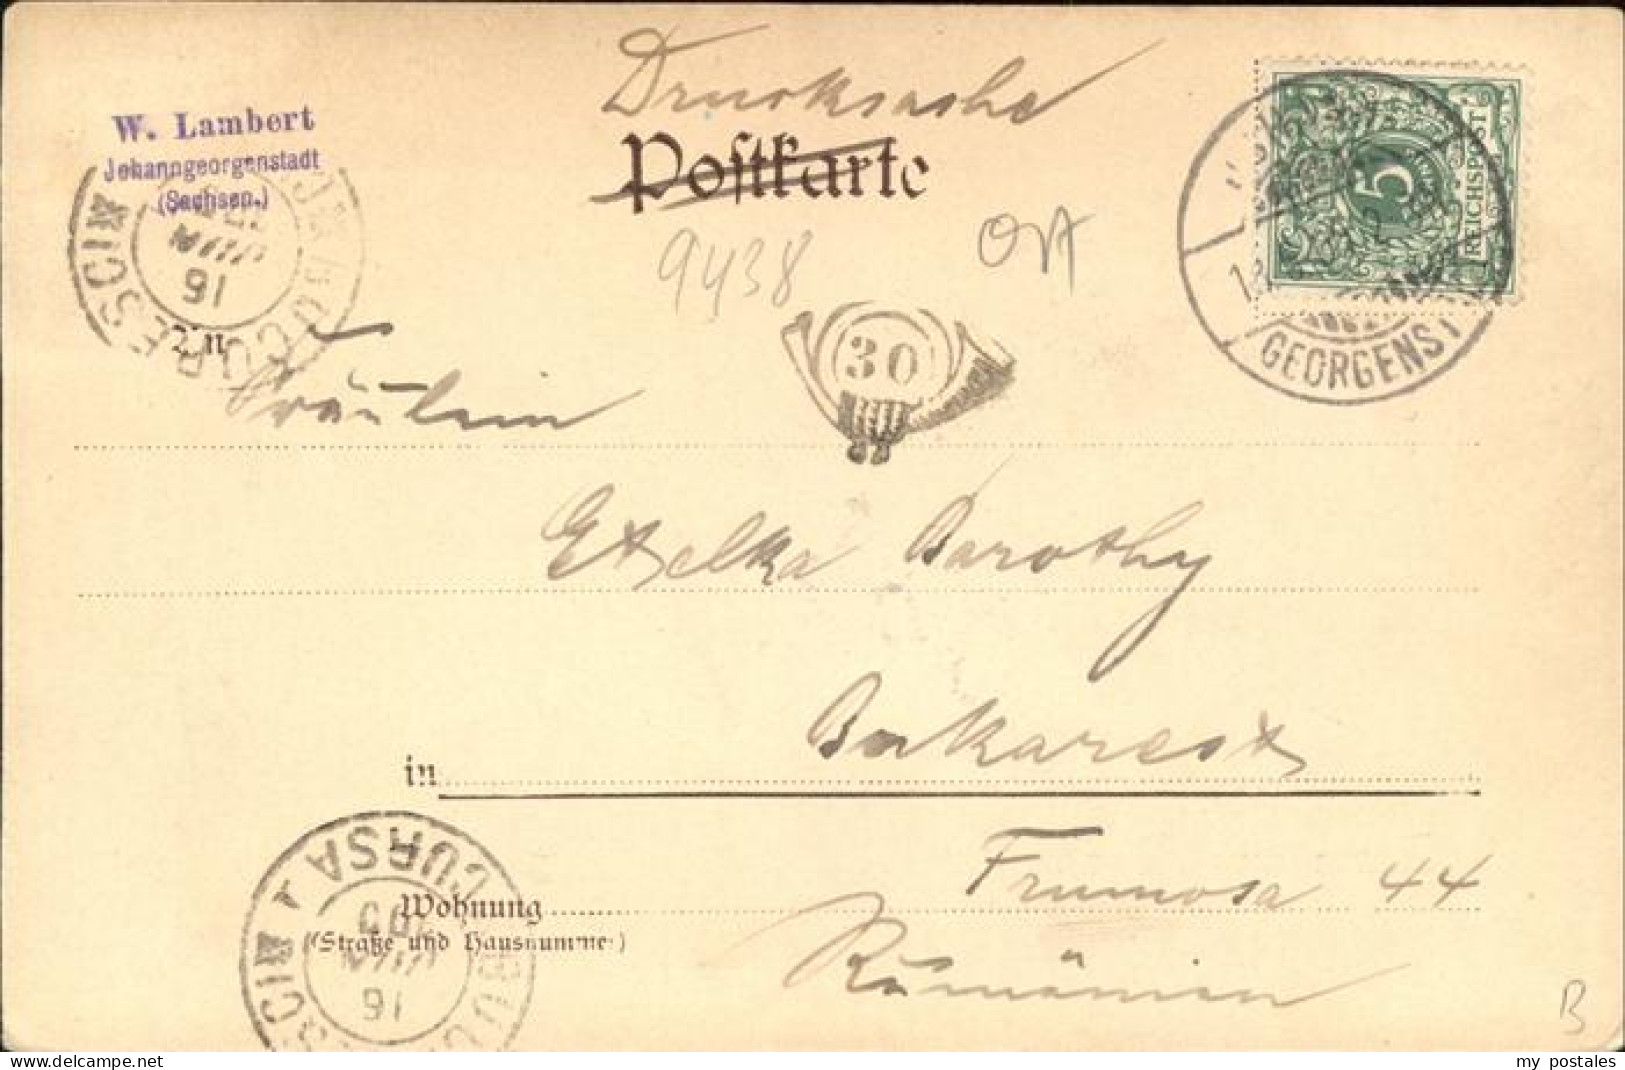 Drucksache
Postkarte
W. Lambert
Johanngeorgenstadt
(Sachsen.)
BUCURESCI
16
9438
Ort
5
REICHSPOST
GEORGENST
30
An
Fräulein
Etelka Barothy
in Bukarest
Frumosa 44
Wohnung
(Straße und Hausnummer)
Rumänien
CURSA 1
BUCURESCI
16
B
my postales